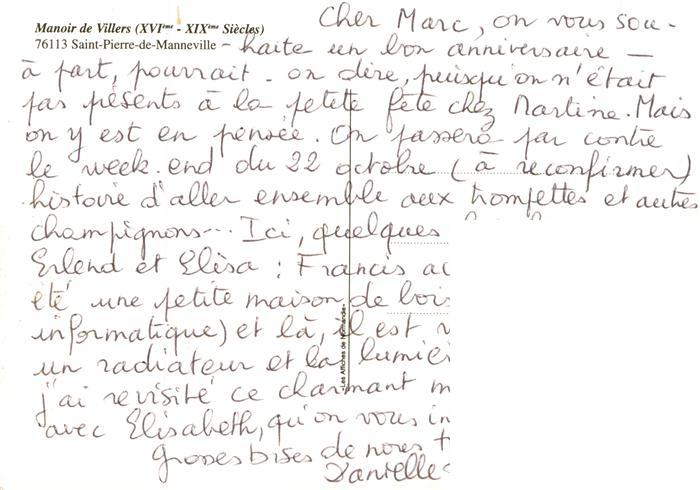 Cher Marc, on vous sou-
Manoir de Villers (XVIème - XIXème Siècles)
76113 Saint-Pierre-de-Manneville - haite un bon anniversaire —
à part, pourrait-on dire, puisqu'on n'était
pas présents à la petite fête chez Martine. Mais
on y est en pensée. On passera par contre
le week-end du 22 octobre (à reconfirmer)
histoire d'aller ensemble aux trompettes et autres
champignons... Ici, quelques
Erlend et Elisa : Francis
été une petite maison de
informatique) et là, il est
un radiateur et la
j'ai revisité ce charmant
avec Elisabeth, qu'on vous
Grosses bises de nous
Danielle
Les Affiches de Normandie